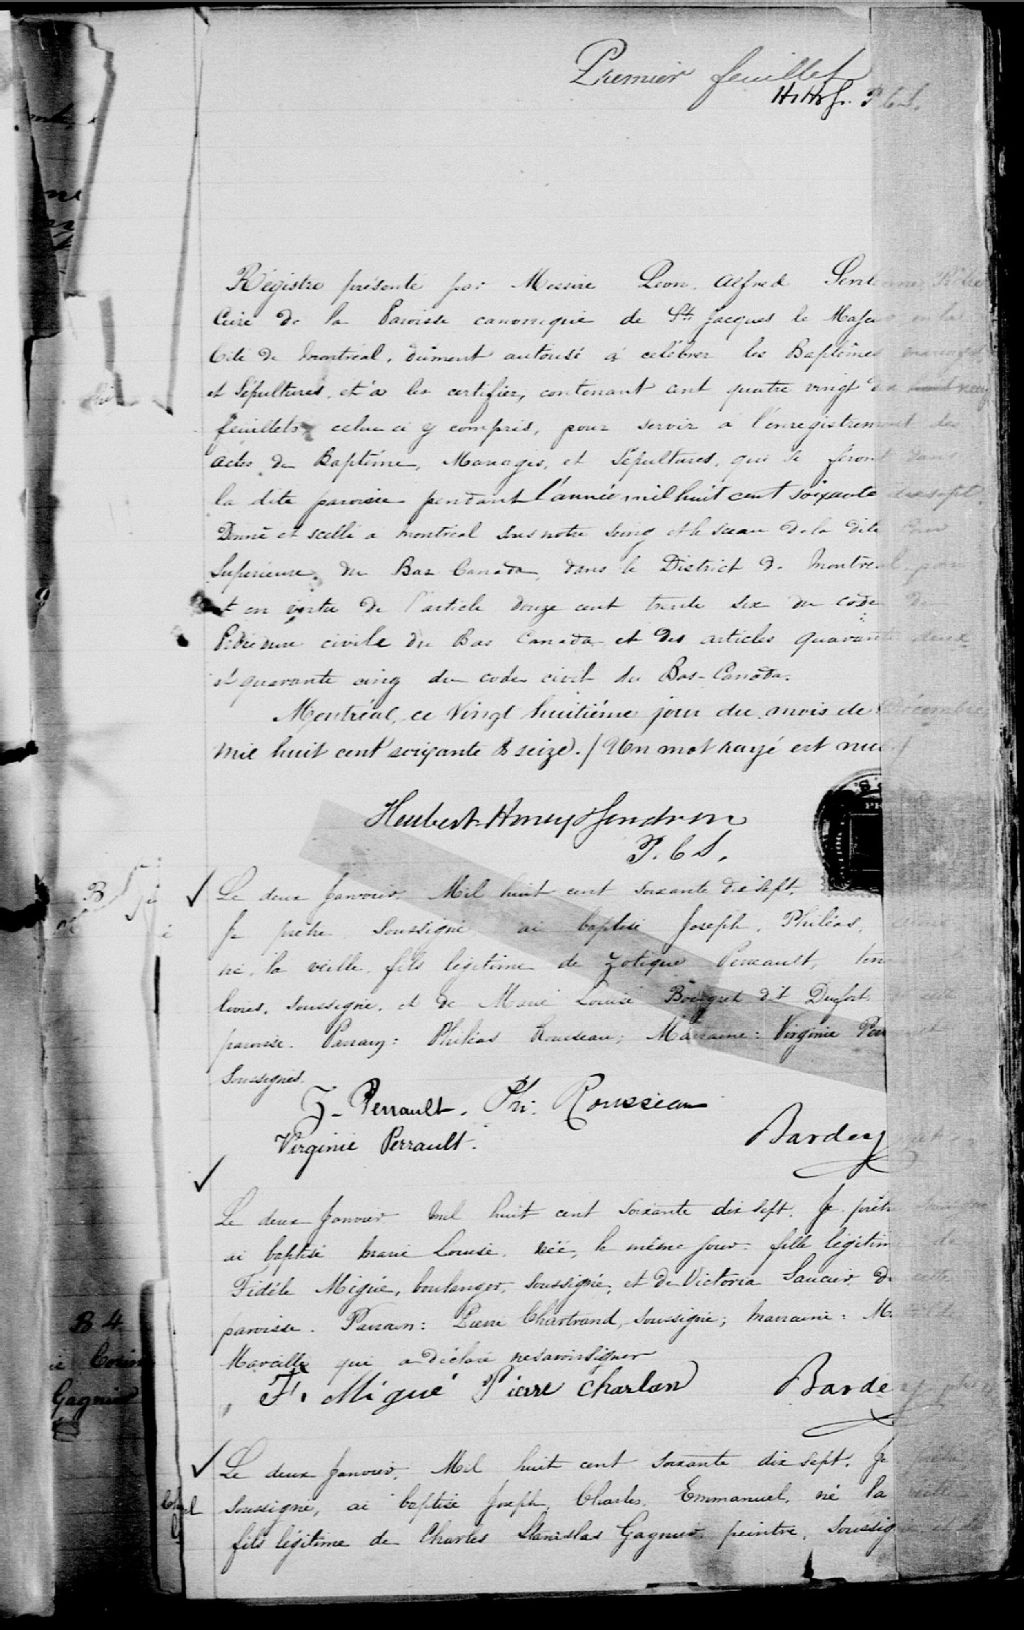 Premier feuillet
H.H.G. P.C.S.
Régistre présenté par Messire Leon Alfred
Curé de la Paroisse canonique de St Jacques le Majeur en la
Cité de Montréal, dûment autorisé à célébrer les Baptêmes
et Sépultures, et à les certifier, contenant cent quatre vingt
feuillets celui ci y compris, pour servir à l'enregistrement des
actes de Baptême, Mariages, et Sépultures, qui se feront dans
la dite paroisse pendant l'année mil huit cent soixante dixsept.
Donné et scellé à Montréal sous notre seing et le sceau de la dite Cour
Superieure, du Bas Canada, dans le District de Montréal,
et en vertu de l'article douze cent trente six du code de
Procedure civile du Bas Canada et des articles quarante deux
et quarante cinq du code civil du Bas-Canada.
Montréal, ce vingt huitième jour du mois de Décembre
mil huit cent soixante & seize. / Un mot rayé est nul /
P.C.S.
B
Le deux Janvier, Mil huit cent soixante dix sept,
Je prêtre soussigné ai baptisé Joseph, Philéas,
né, la veille, fils légitime de Zotique Perrault,
livres, soussigné, et de Marie Louise dit Dufort
paroisse. Parrain: Philéas Rousseau; Marraine: Virginie
Soussignés.
Z. Perrault. Phi. Rousseau
Virginie Perrault.
Le deux Janvier mil huit cent soixante dix sept, Je prêtre soussigné
ai baptisé Marie Louise, née, le même jour, fille légitime de
Fidèle Migué, boulanger, soussigné, et de Victoria Saucier de cette
paroisse. Parrain: Pierre Chartrand, soussigné; marraine: M.
qui a déclaré ne savoir signer
F. Migué Pierre Charlan
B 4
Gagnier
Le deux Janvier, Mil huit cent soixante dix sept, Je prêtre
soussigné, ai baptisé Joseph, Charles, Emmanuel, né la veille
fils légitime de Charles Stanislas Gagnier peintre, soussigné